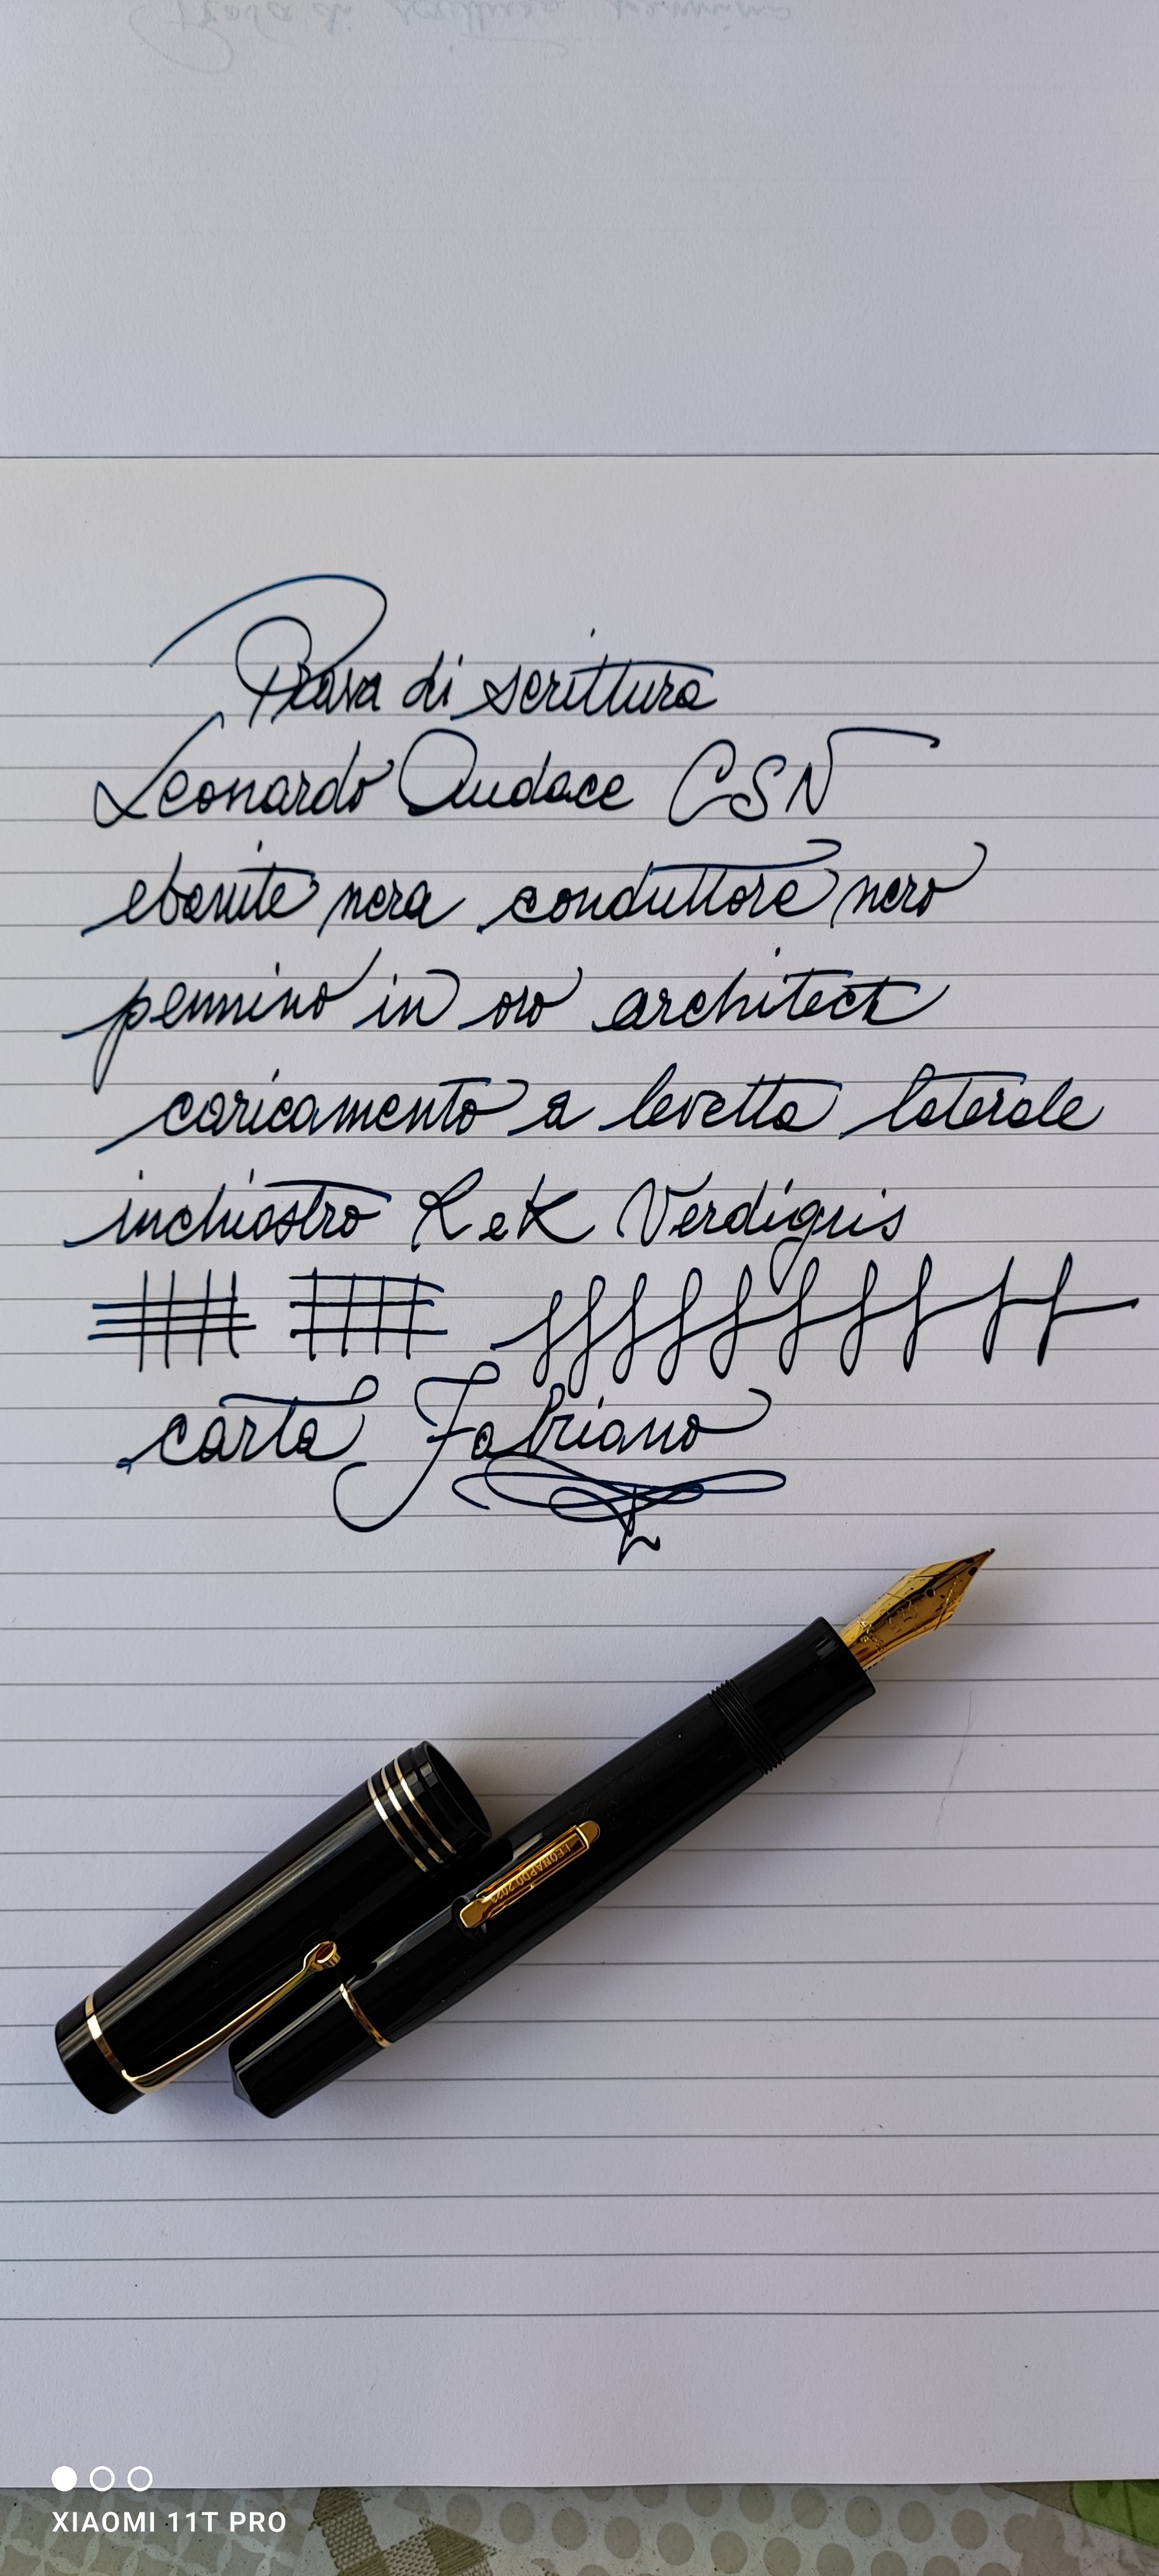 Prova di scrittura
Leonardo Audace CSN
ebanite nera conduttore nero
pennino in oro architect
caricamento a levetta laterale
inchiostro R e K Verdigris
carta Fabriano
LEONARDO 2023
XIAOMI 11T PRO